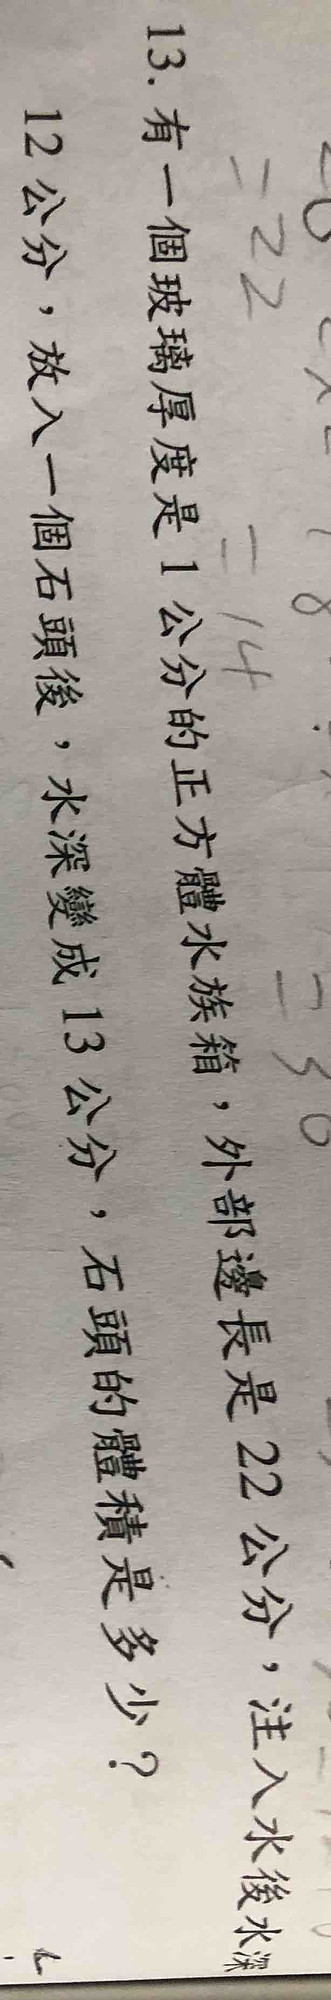 = 22
= 14
= 30
13. 有一個玻璃厚度是1公分的正方體水族箱，外部邊長是22公分，注入水後水深
12公分，放入一個石頭後，水深變成13公分，石頭的體積是多少？